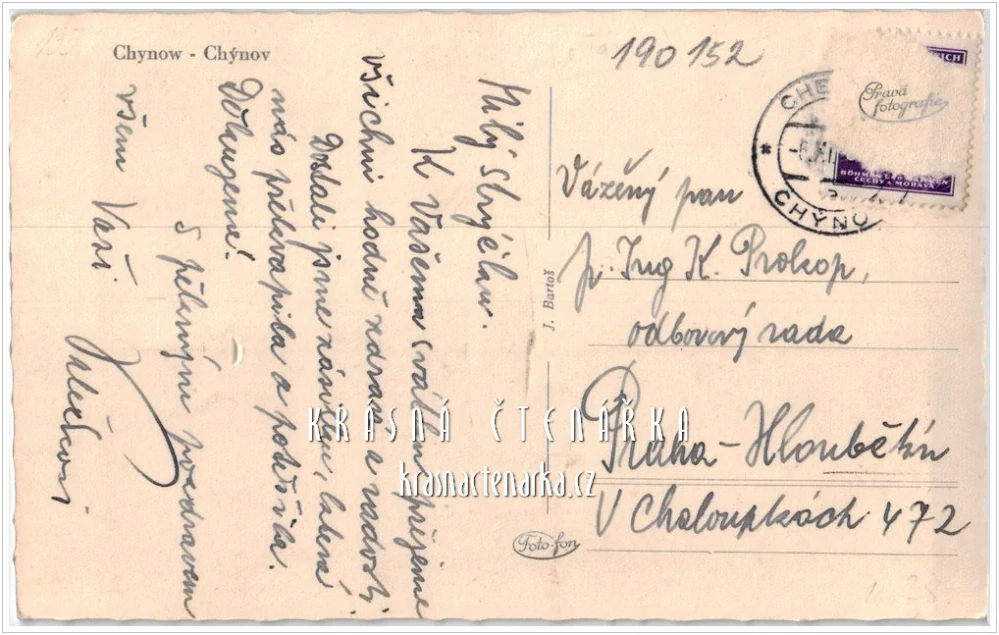 Chynow - Chýnov
190 152
Milý strýčku.
K Vašemu svátku přejeme
všichni hodně zdraví a radosti
Dostali jsme zásilku, která
nás překvapila a potěšila.
Děkujeme!
S pěkným pozdravem
všem Vaši
J. Bartoš
Foto-fon
Vážený pan
p. Ing K. Prokop,
odborový rada
Praha-Hloubětín
V Chaloupkách 472
CHÝNO
Pravá
fotografie
BÖHMEN UND MÄHREN
ČECHY A MORAVA
KRÁSNÁ ČTENÁŘKA
krasnactenarka.cz